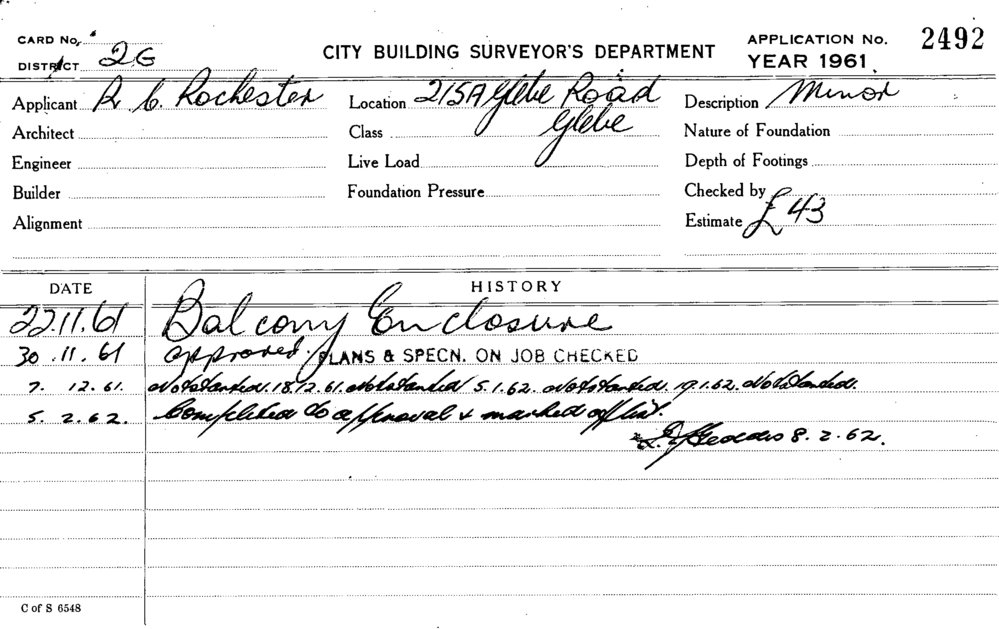 CARD No.
DISTRICT 2G
CITY BUILDING SURVEYOR'S DEPARTMENT
APPLICATION No. 2492
YEAR 1961
Applicant R. C. Rochester Location 215A Glebe Road Description Minor
Glebe
Architect Class Nature of Foundation
Engineer Live Load Depth of Footings
Builder Foundation Pressure Checked by
Alignment Estimate £43
DATE HISTORY
22.11.61 Balcony Enclosure
30.11.61 approved PLANS & SPECN. ON JOB CHECKED
7. 12.61. Not started. 18.12.61. Not started 5.1.62. Not started. 19.1.62. Not started.
5. 2.62. Completed to approval & marked off list.
Geddes 8.2.62.
C of S 6548